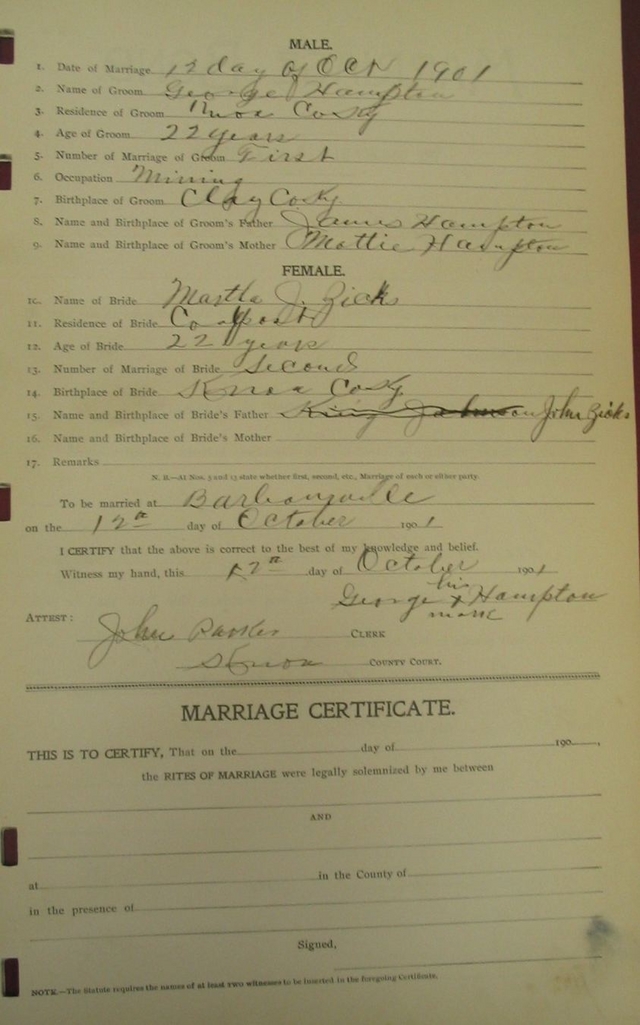 MALE.
1. Date of Marriage 12 day of OCT 1901
2. Name of Groom George Hampton
3. Residence of Groom Knox Co Ky
4. Age of Groom 22 years
5. Number of Marriage of Groom First
6. Occupation Mining
7. Birthplace of Groom Clay Co Ky
8. Name and Birthplace of Groom's Father James Hampton
9. Name and Birthplace of Groom's Mother Mottie Hampton
FEMALE.
10. Name of Bride Martha J. Zicks
11. Residence of Bride
12. Age of Bride 22 years
13. Number of Marriage of Bride Second
14. Birthplace of Bride Knox Co Ky
15. Name and Birthplace of Bride's Father King Johnson John Zicks
16. Name and Birthplace of Bride's Mother
17. Remarks
N. B.—At Nos. 5 and 13 state whether first, second, etc., Marriage of each or either party.
To be married at Barbourville
on the 12th day of October 1901
I CERTIFY that the above is correct to the best of my knowledge and belief.
Witness my hand, this 12th day of October 1901
his
George x Hampton
mark
ATTEST:
John Parker CLERK
Knox COUNTY COURT.
MARRIAGE CERTIFICATE.
THIS IS TO CERTIFY, That on the day of 190 ,
the RITES OF MARRIAGE were legally solemnized by me between
AND
at in the County of
in the presence of
Signed,
NOTE.—The Statute requires the names of at least two witnesses to be inserted in the foregoing Certificate.